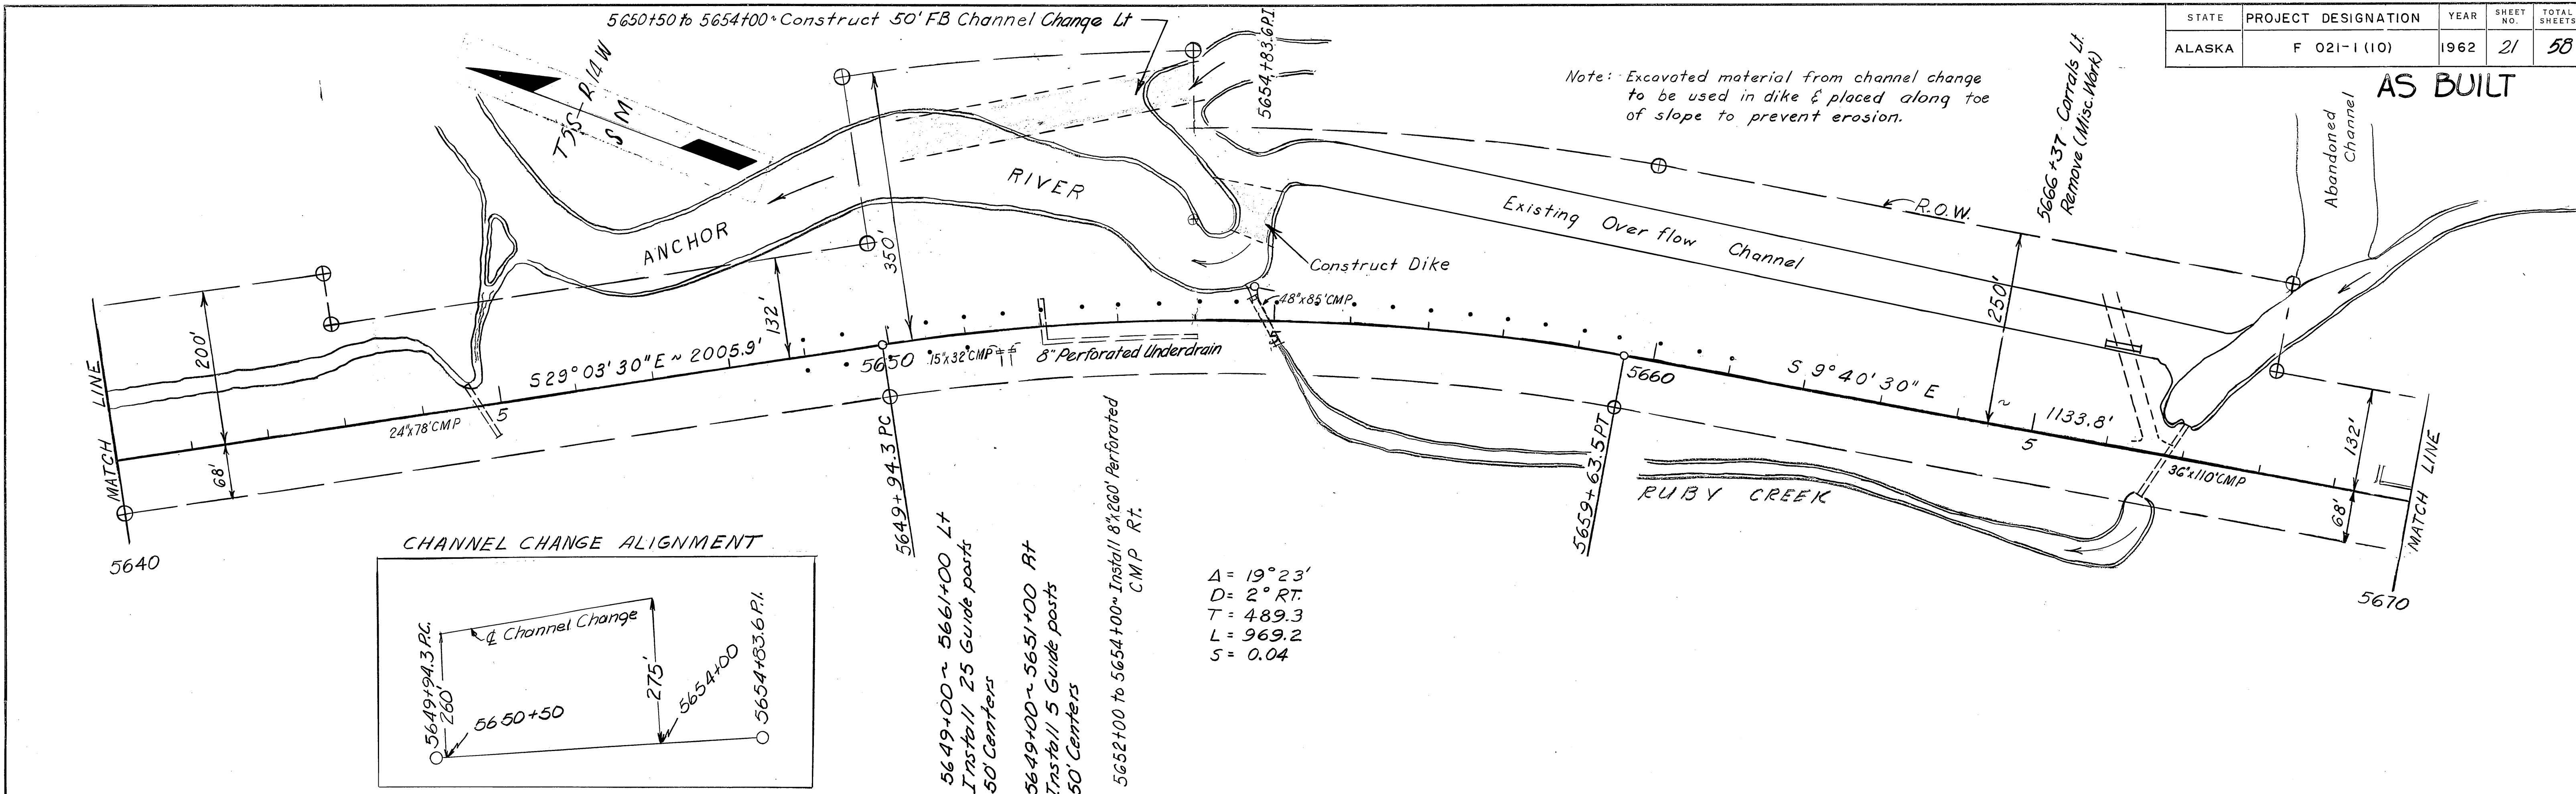 5650+50 to 5654+00~Construct 50' FB Channel Change Lt
STATE
PROJECT DESIGNATION
YEAR
SHEET NO.
TOTAL SHEETS
ALASKA
F 021-1 (10)
1962
21
58
AS BUILT
T5S-R14W
S M
5654+83.6 P.I.
Note: Excavated material from channel change
to be used in dike & placed along toe
of slope to prevent erosion.
5666+37 Corrals Lt.
Remove (Misc. Work)
Abandoned
Channel
ANCHOR
RIVER
350'
Existing Over flow Channel
R.O.W.
Construct Dike
250'
MATCH LINE
200'
68'
132'
S29° 03' 30" E ~ 2005.9'
24"x78' CMP
5
5650
15"x32' CMP
8" Perforated Underdrain
48"x85' CMP
5660
S 9° 40' 30" E ~ 1133.8'
5
36"x110' CMP
132'
68'
MATCH LINE
5640
5670
RUBY CREEK
5649+94.3 PC
5659+63.5 PT
CHANNEL CHANGE ALIGNMENT
5649+94.3 P.C.
260'
℄ Channel Change
5650+50
275'
5654+00
5654+83.6 P.I.
5649+00 ~ 5661+00 Lt
Install 25 Guide posts
50' Centers
5649+00 ~ 5651+00 Rt
Install 5 Guide posts
50' Centers
5652+00 to 5654+00~ Install 8"x260' Perforated
CMP Rt.
Δ = 19° 23'
D = 2° RT.
T = 489.3
L = 969.2
S = 0.04